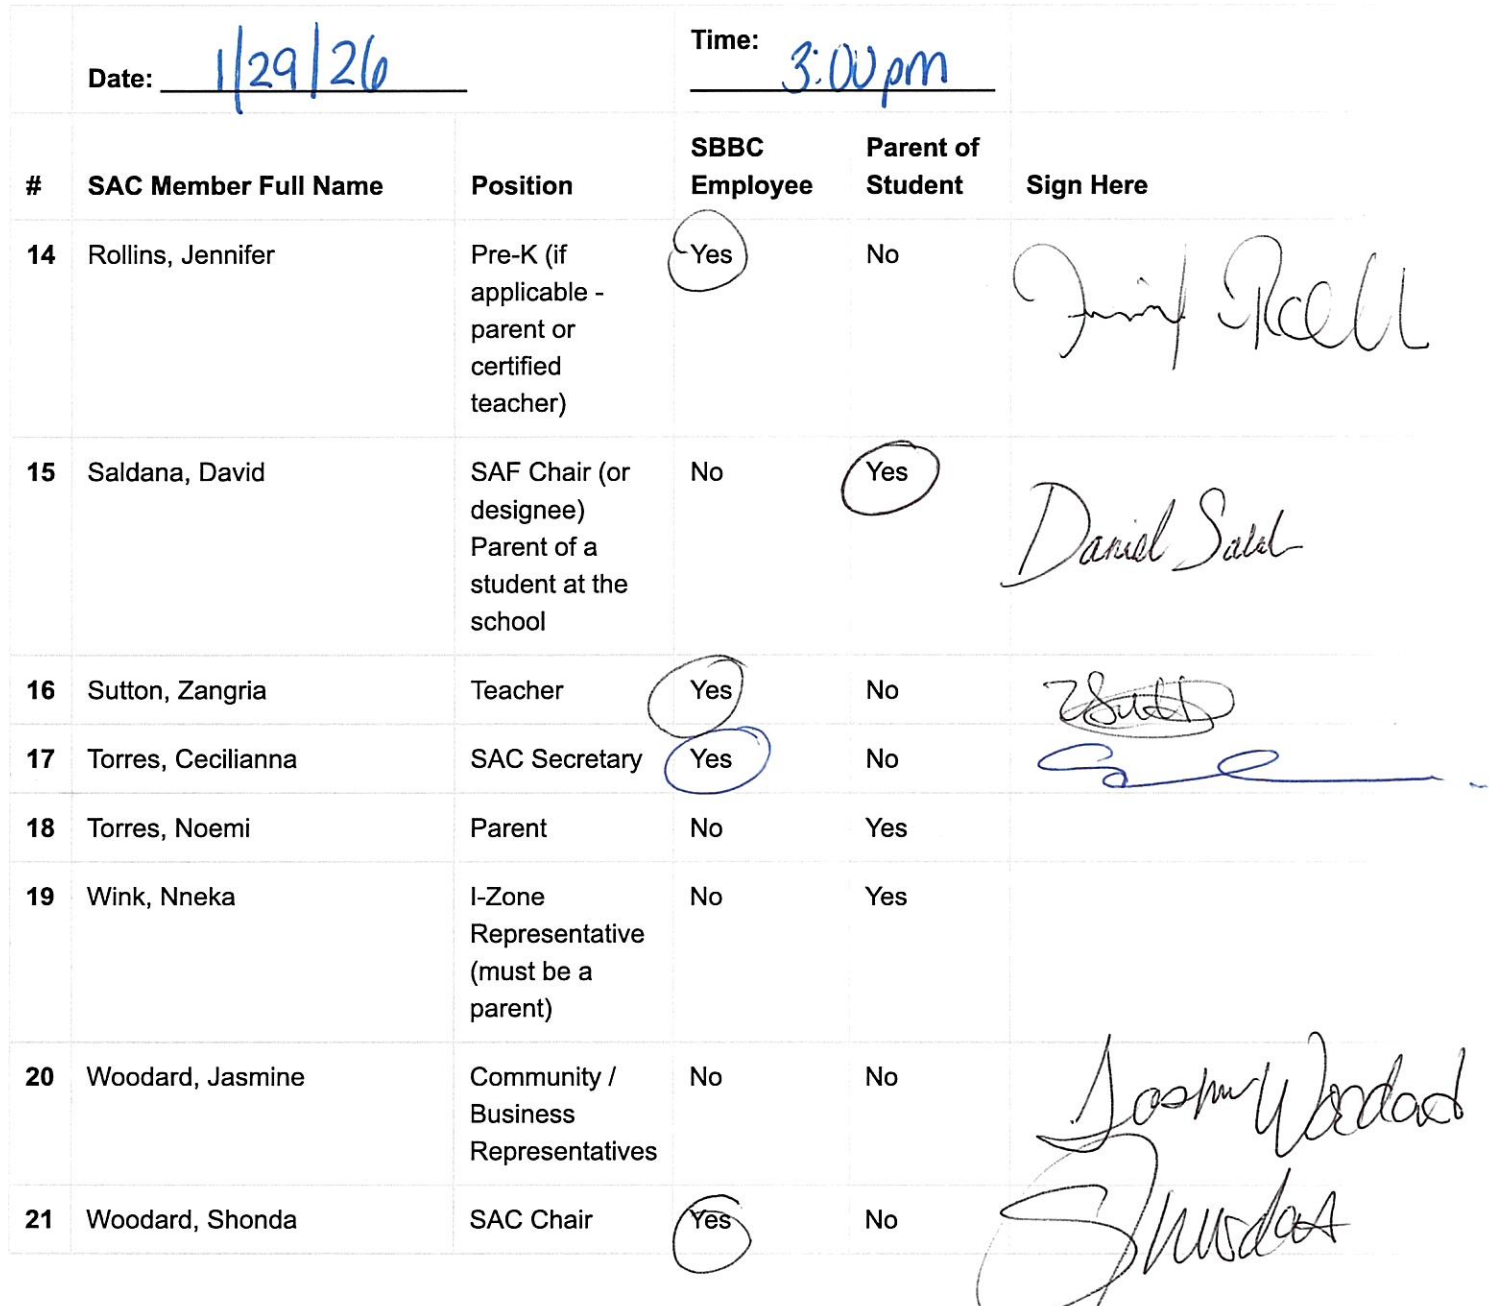 Date: 1/29/26 Time: 3:00pm
# SAC Member Full Name Position SBBC Employee Parent of Student Sign Here
14 Rollins, Jennifer Pre-K (if Yes No
applicable -
parent or
certified
teacher)
15 Saldana, David SAF Chair (or No Yes
designee)
Parent of a
student at the
school
Daniel
16 Sutton, Zangria Teacher Yes No
17 Torres, Cecilianna SAC Secretary Yes No
18 Torres, Noemi Parent No Yes
19 Wink, Nneka I-Zone No Yes
Representative
(must be a
parent)
20 Woodard, Jasmine Community / No No
Business
Representatives
Woodard
21 Woodard, Shonda SAC Chair Yes No